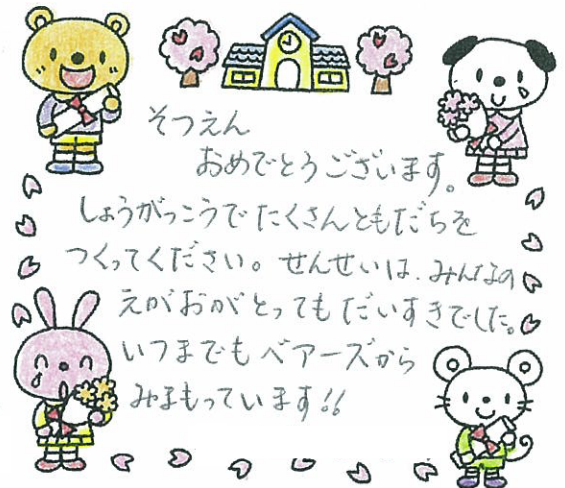 そつえん
おめでとうございます。
しょうがっこうでたくさんともだちを
つくってください。せんせいは、みんなの
えがおがとってもだいすきでした。
いつまでもベアーズから
みまもっています!!